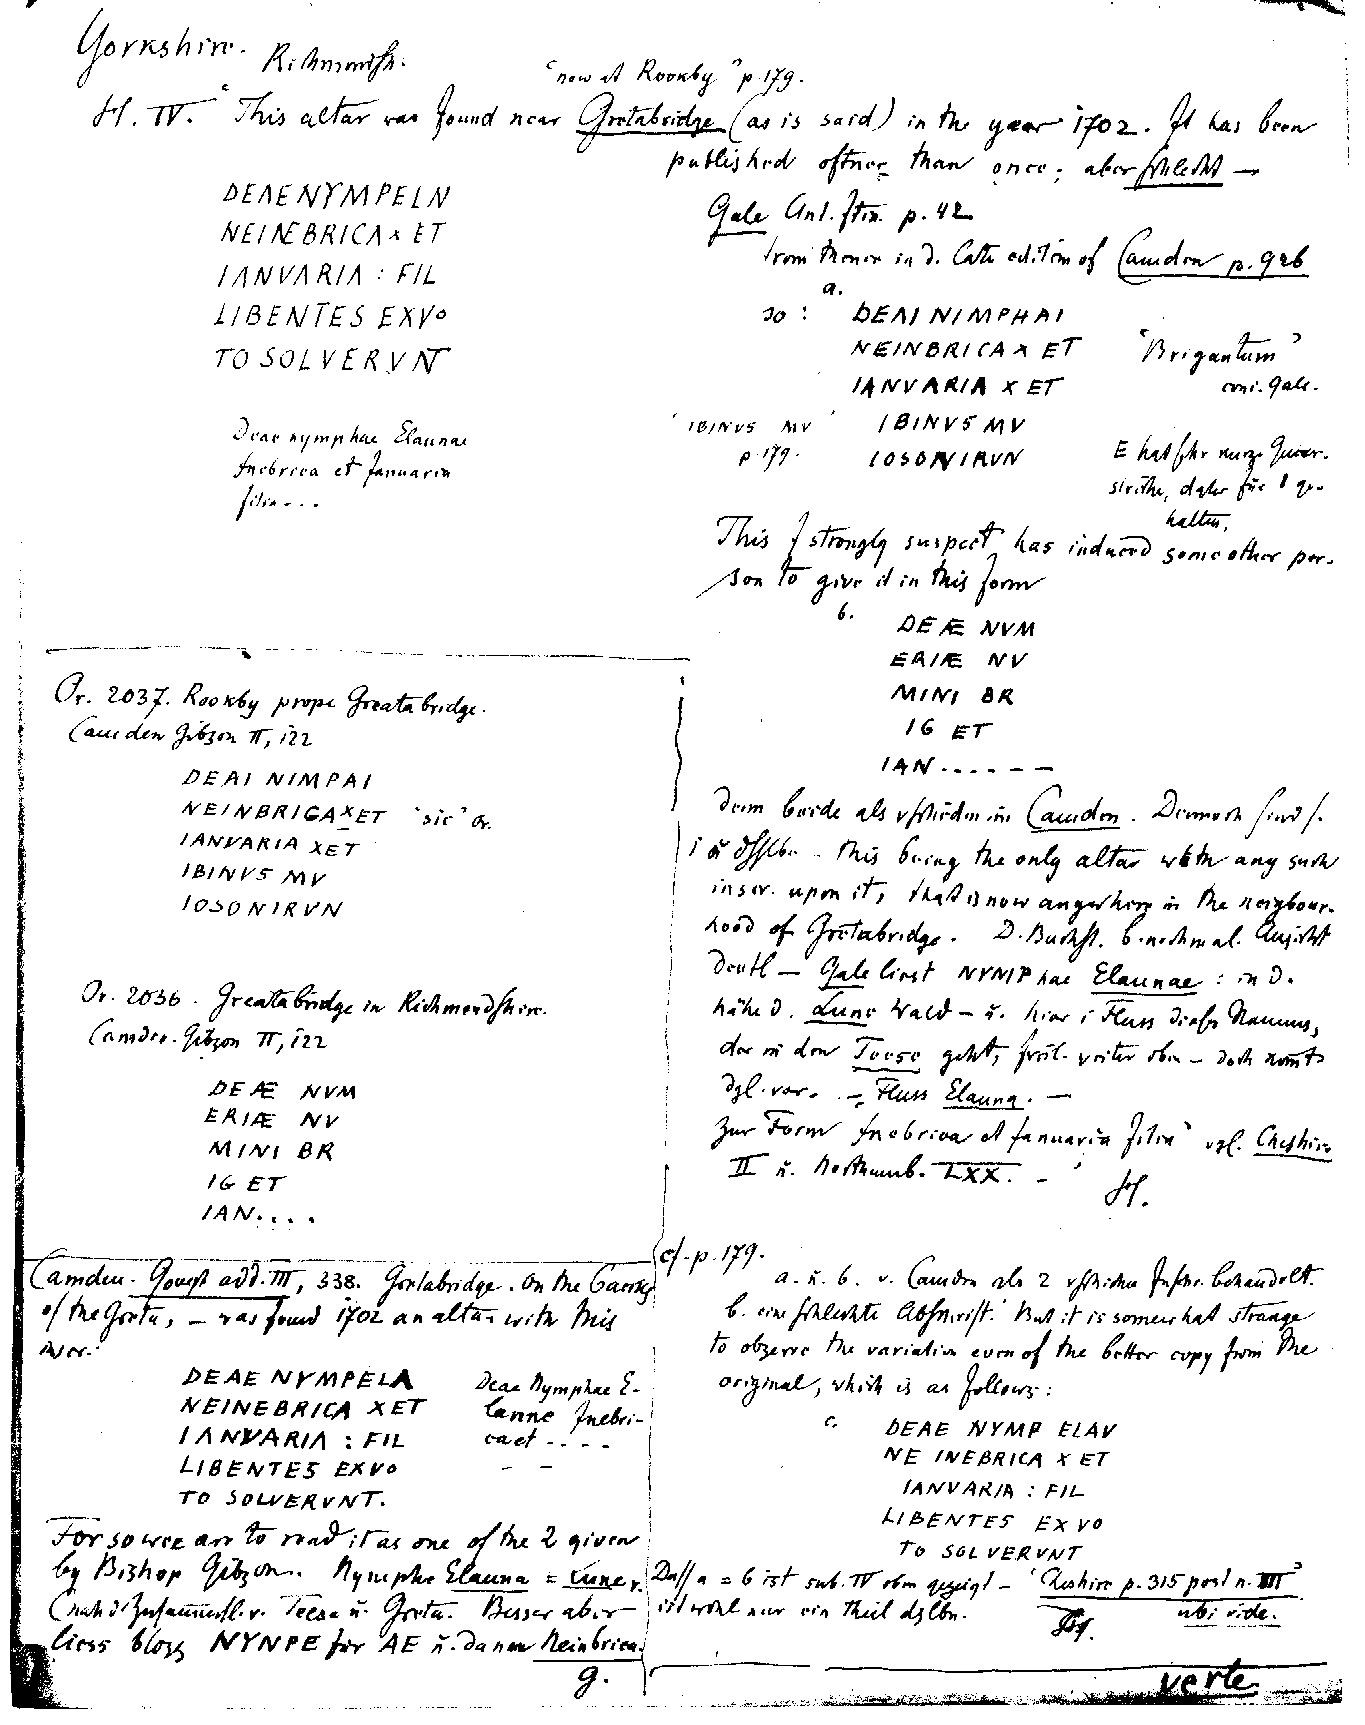 Yorkshire. Richmondsh.
"now at Rookby" p. 179.
H. IV. "This altar was found near Gretabridge (as is said) in the year 1702. It has been
published oftner than once; aber schlecht —
DEAE NYMPELN
NEINEBRICA x ET
IANVARIA : FIL
LIBENTES EXVO
TO SOLVERVNT
Deae nymphae Elaunae
Inebrica et Januaria
filia - . .
Gale Ant. Itin. p. 42
from thence in d. late edition of Camden p. 926
a.
so : DEAI NIMPHAI
NEINBRICA x ET
IANVARIA x ET
IBINVS MV
IOSONIRVN
"Brigantum"
coni. Gale.
'IBINVS MV'
p. 179.
E hat sehr kurze Quer-
striche, daher für I ge-
halten.
This I strongly suspect has induced some other per-
son to give it in this form
b.
DEÆ NVM
ERIÆ NV
MINI BR
IG ET
IAN - - - - - -
denn beide als in Camden. Dennoch sind s.
this being the only altar with any such
inscr. upon it, that is now anywhere in the neighbour-
hood of Gretabridge. D. Buchst. b. nochmal. Ansicht
deutl — Gale liest NYMPhae Elaunae : in d.
nähe d. Lune Wald — u. hier i Fluss dieses Namens,
der in den Teese geht, freil. weiter oben — doch kommt
dgl. vor. — Fluss Elauna. —
Zur Form Inebrica et Januaria filia" vgl. Cheshire
II u. Northumb. LXX. —
H.
Or. 2037. Rookby prope Greatabridge.
Camden Gibson II, 122
DEAI NIMPAI
NEINBRIGA x ET "sic" Or.
IANVARIA x ET
IBINVS MV
IOSONIRVN
Or. 2036. Greatabridge in Richmondshire.
Camden. Gibson II, 122
DEÆ NVM
ERIÆ NV
MINI BR
IG ET
IAN. . . .
Camden. Gough add. III, 338. Gretabridge. On the banks
of the Greta, — was found 1702 an altar with this
inscr.
DEAE NYMPELA
NEINEBRICA XET
IANVARIA : FIL
LIBENTES EXVO
TO SOLVERVNT.
Deae Nymphae E-
launae Inebri-
ca et - . . .
For so we are to read it as one of the 2 given
by Bishop Gibson. Nymphe Elauna = Lune r.
(nach d Zusammenfl. v. Teese u. Greta. Besser aber
liess bloss NYNPE für AE u. dann Neinbrica.
g.
cf. p. 179.
a. u. b. v. Camden als 2 Inschr. behandelt.
b. eine schlechte Abschrift. But it is somewhat strange
to observe the variation even of the better copy from the
original, which is as follows:
c. DEAE NYMP ELAV
NE INEBRICA x ET
IANVARIA : FIL
LIBENTES EXVO
TO SOLVERVNT
Dass a = b ist sub. IV oben gezeigt — Cheshire p. 315 post n. III
ist wohl nur ein theil dslbn. ubi vide.
verte